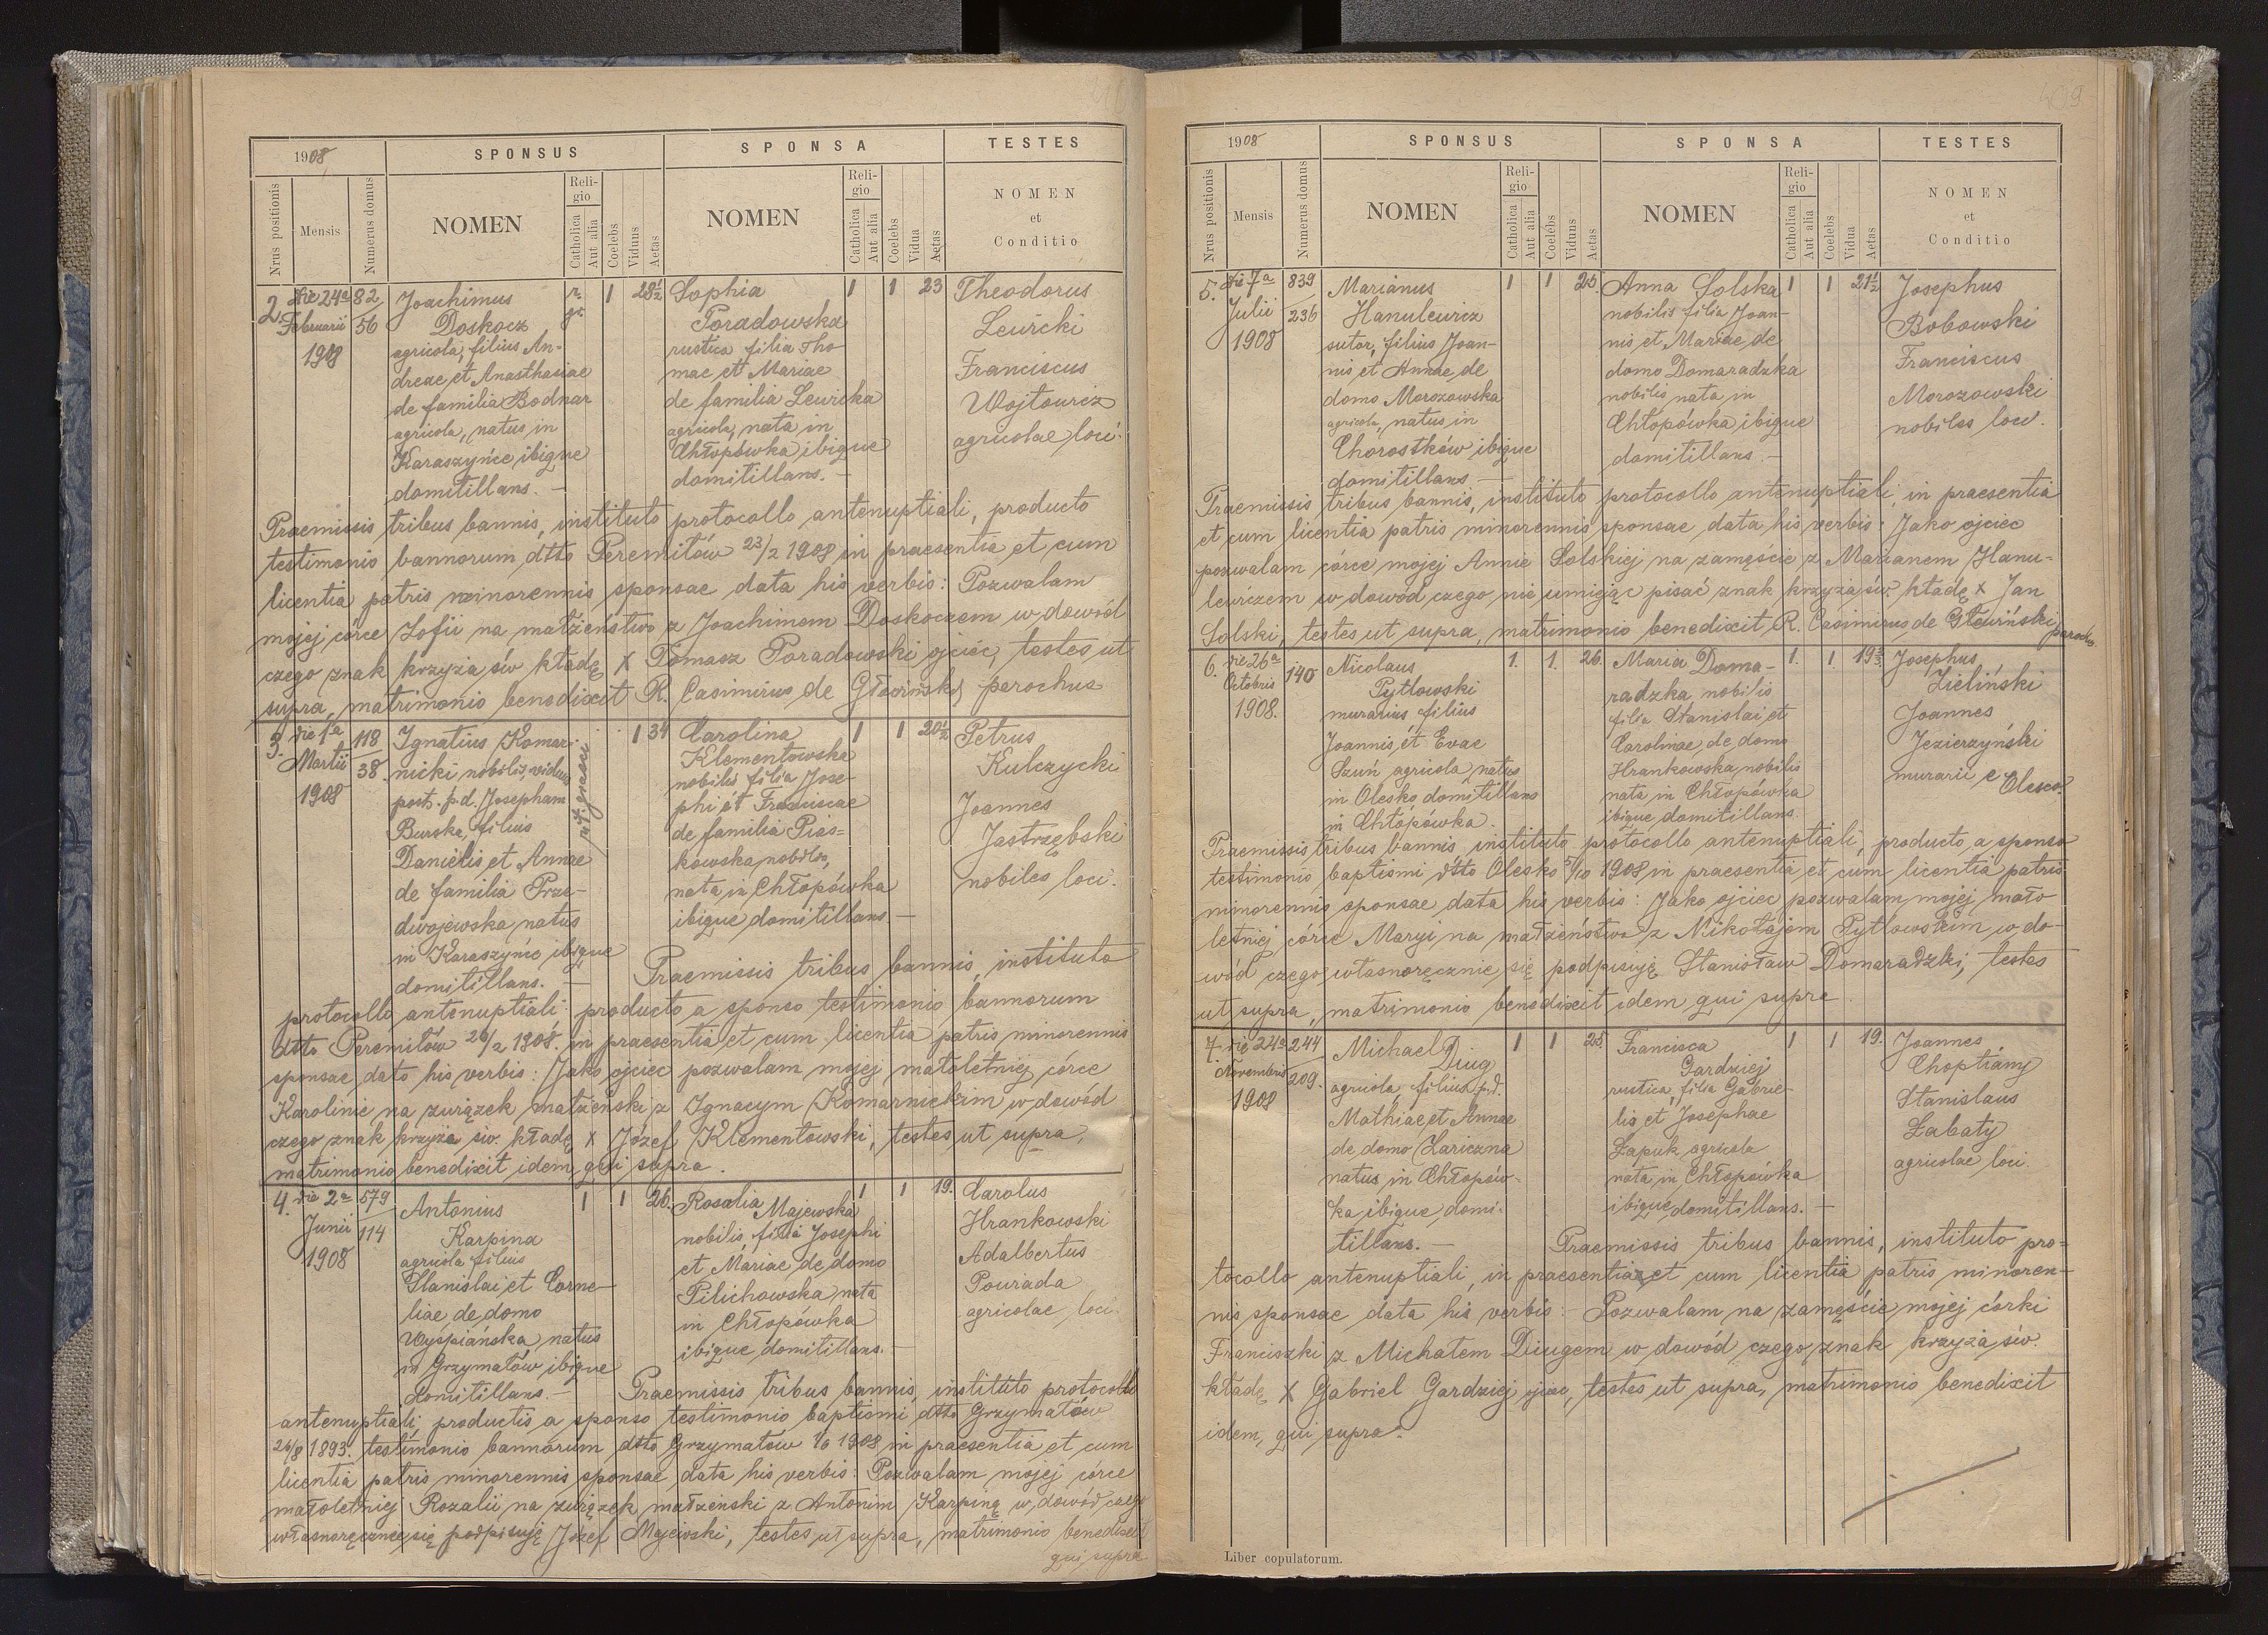 1908
SPONSUS
SPONSA
TESTES
Nrus positionis
Mensis
Numerus domus
NOMEN
Religio
Catholica
Aut alia
Coelebs
Viduus
Aetas
NOMEN
Religio
Catholica
Aut alia
Coelebs
Vidua
Aetas
NOMEN
et
Conditio
2. die 24a Februarii 1908
82
56
Joachimus
Doskocz
agricola, filius An-
dreae et Anasthasiae
de familia Bodnar
agricola, natus in
Karaszyńce ibique
domitillans. —
r. gr.
1 28½
Sophia
Poradowska
rustica filia Tho-
mae et Mariae
de familia Lewicka
agricola, nata in
Chłopówka ibique
domitillans. —
1 1 23
Theodorus
Lewicki
Franciscus
Wojtowicz
agricolae loci.
Praemissis tribus bannis, instituto protocollo antenuptiali, producto
testimonio bannorum dtto Peremiłów 23/2 1908 in praesentia et cum
licentia patris minorennis sponsae data his verbis: Pozwalam
mojej córce Zofii na małżeństwo z Joachimem Doskoczem w dowód
czego znak krzyża św kładę x Tomasz Poradowski ojciec, testes ut
supra, matrimonio benedixit R. Casimirus de Głowiński parochus
3. die 1a Martii 1908
118
38
Ignatius Komar-
nicki nobilis, viduus
post. p.d. Josepham
Burska, filius
Danielis et Annae
de familia Prze-
dwojewska natus
in Karaszyńce ibique
domitillans. —
1 34
Carolina
Klementowska
nobilis filia Jose-
phi et Franciscae
de familia Pias-
kowska, nobilis,
nata in Chłopówka
ibique domitillans —
1 1 20½
Petrus
Kulczycki
Joannes
Jastrzębski
nobiles loci.
Praemissis tribus bannis, instituto
protocollo antenuptiali producto a sponso testimonio bannorum
dtto Peremiłów 26/2 1908. in praesentia et cum licentia patris minorennis
sponsae dato his verbis: Jako ojciec pozwalam mojej małoletniej córce
Karolinie na związek małżeński z Ignacym Komarnickim w dowód
czego znak krzyża św. kładę x Józef Klementowski, testes ut supra,
matrimonio benedixit idem qui supra.
4. die 2a Junii 1908
579
114
Antonius
Karpina
agricola filius
Stanislai et Corne-
liae de domo
Wyspiańska natus
in Grzymałów ibique
domitillans. —
1 1 26.
Rosalia Majewska
nobilis, filia Josephi
et Mariae de domo
Pilichowska nata
in Chłopówka
ibique domitillans. —
1 1 19.
Carolus
Hrankowski
Adalbertus
Pourada
agricolae loci.
Praemissis tribus bannis, instituto protocollo
antenuptiali, productis a sponso testimonio baptismi dtto Grzymałów
26/8 1893. testimonio bannorum dtto Grzymałów 1/6 1908 in praesentia et cum
licentia patris minorennis sponsae data his verbis: Pozwalam mojej córce
małoletniej Rozalii na związek małżeński z Antonim Karpiną w dowód czego
własnoręcznie się podpisuję Józef Majewski, testes ut supra, matrimonio benedixit
qui supra
1908
SPONSUS
SPONSA
TESTES
Nrus positionis
Mensis
Numerus domus
NOMEN
Religio
Catholica
Aut alia
Coelebs
Viduus
Aetas
NOMEN
Religio
Catholica
Aut alia
Coelebs
Vidua
Aetas
NOMEN
et
Conditio
5. die 7a Julii 1908
839
236
Marianus
Hanulewicz
sutor, filius Joan-
nis et Annae de
domo Morozowska
agricola, natus in
Chorostków ibique
domitillans. —
1 1 25.
Anna Solska
nobilis filia Joan-
nis et Mariae de
domo Domaradzka
nobilis nata in
Chłopówka ibique
domitillans. —
1 1 21½
Josephus
Bobowski
Franciscus
Morozowski
nobiles loci.
Praemissis tribus bannis, instituto protocollo antenuptiali, in praesentia
et cum licentia patris minorennis sponsae data his verbis: Jako ojciec
pozwalam córce mojej Annie Solskiej na zamęście z Marianem Hanu-
lewiczem w dowód czego nie umiejąc pisać znak krzyża św. kładę x Jan
Solski, testes ut supra, matrimonio benedixit R. Casimirus de Głowiński parochus
6. die 26a Octobris 1908.
140
Nicolaus
Pytlowski
murarius filius
Joannis et Evae
Szuń agricola, natus
in Olesko domitillans
in Chłopówka.
1. 1. 26.
Maria Doma-
radzka nobilis
filia Stanislai et
Carolinae de domo
Hrankowska nobilis
nata in Chłopówka
ibique domitillans.
1. 1. 19
Josephus
Zieliński
Joannes
Jezierzyński
murarii e Olesco.
Praemissis tribus bannis instituto protocollo antenuptiali, producto a sponso
testimonio baptismi dtto Olesko 5/10 1908 in praesentia et cum licentia patris
minorennis sponsae data his verbis: Jako ojciec pozwalam mojej mało
letniej córce Maryi na małżeństwo z Mikołajem Pytlowskim w do-
wód czego własnoręcznie się podpisuję Stanisław Domaradzki, testes
ut supra, matrimonio benedixit idem qui supra.
7. die 24a Novembris 1908
244
209.
Michael Diug
agricola, filius p.d.
Mathiae et Annae
de domo Zariczna
natus in Chłopów-
ka ibique domi-
tillans. —
1 1 25.
Francisca
Gardziej
rustica, filia Gabrie-
lis et Josephae
Łapuk agricola
nata in Chłopówka
ibique domitillans. —
1 1 19.
Joannes
Choptiany
Stanislaus
Łabaty
agricolae loci.
Praemissis tribus bannis, instituto pro-
tocollo antenuptiali, in praesentia et cum licentia patris minoren-
nis sponsae data his verbis: Pozwalam na zamęście mojej córki
Franciszki z Michałem Diugem w dowód czego znak krzyża św.
kładę x Gabriel Gardziej ojciec, testes ut supra, matrimonio benedixit
idem, qui supra.
Liber copulatorum.